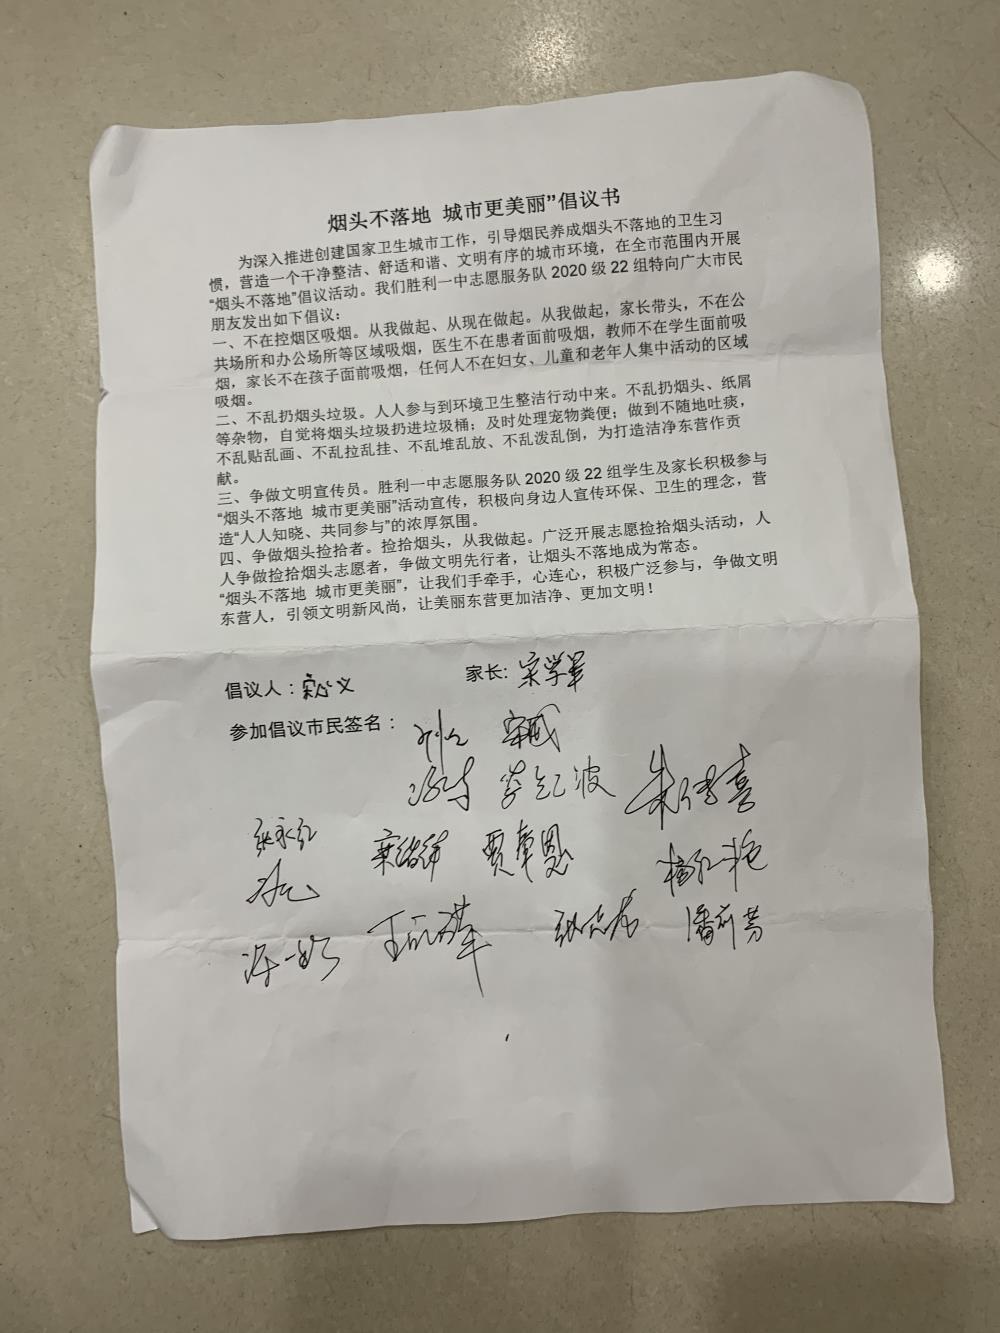 烟头不落地 城市更美丽”倡议书
为深入推进创建国家卫生城市工作，引导烟民养成烟头不落地的卫生习
惯，营造一个干净整洁、舒适和谐、文明有序的城市环境，在全市范围内开展
“烟头不落地”倡议活动。我们胜利一中志愿服务队 2020 级 22 组特向广大市民
朋友发出如下倡议：
一、不在控烟区吸烟。从我做起、从现在做起。从我做起，家长带头，不在公
共场所和办公场所等区域吸烟，医生不在患者面前吸烟，教师不在学生面前吸
烟，家长不在孩子面前吸烟，任何人不在妇女、儿童和老年人集中活动的区域
吸烟。
二、不乱扔烟头垃圾。人人参与到环境卫生整洁行动中来。不乱扔烟头、纸屑
等杂物，自觉将烟头垃圾扔进垃圾桶；及时处理宠物粪便；做到不随地吐痰，
不乱贴乱画、不乱拉乱挂、不乱堆乱放、不乱泼乱倒，为打造洁净东营作贡
献。
三、争做文明宣传员。胜利一中志愿服务队 2020 级 22 组学生及家长积极参与
“烟头不落地 城市更美丽”活动宣传，积极向身边人宣传环保、卫生的理念，营
造“人人知晓、共同参与”的浓厚氛围。
四、争做烟头捡拾者。捡拾烟头，从我做起。广泛开展志愿捡拾烟头活动，人
人争做捡拾烟头志愿者，争做文明先行者，让烟头不落地成为常态。
“烟头不落地 城市更美丽”，让我们手牵手，心连心，积极广泛参与，争做文明
东营人，引领文明新风尚，让美丽东营更加洁净、更加文明！
倡议人： 家长: 宋学军
参加倡议市民签名：
李红波 朱传喜
张永红